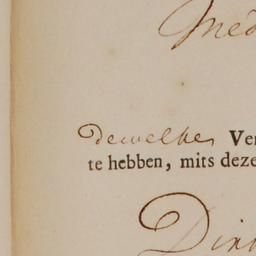 Med
dewelke Ver
te hebben, mits deze
Dir